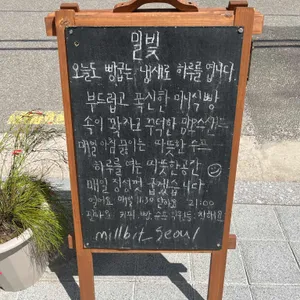 밀빛
오늘도 빵굽는 냄새로 하루를 엽니다.
부드럽고 폭신한 미식빵
속이 꽉차고 꾸덕한
매일 아침 끓이는 따뜻한 수프
하루를 여는 따뜻한공간
매일 정성껏 굽겠습니다
매일
커피 빵
millbit_seoul